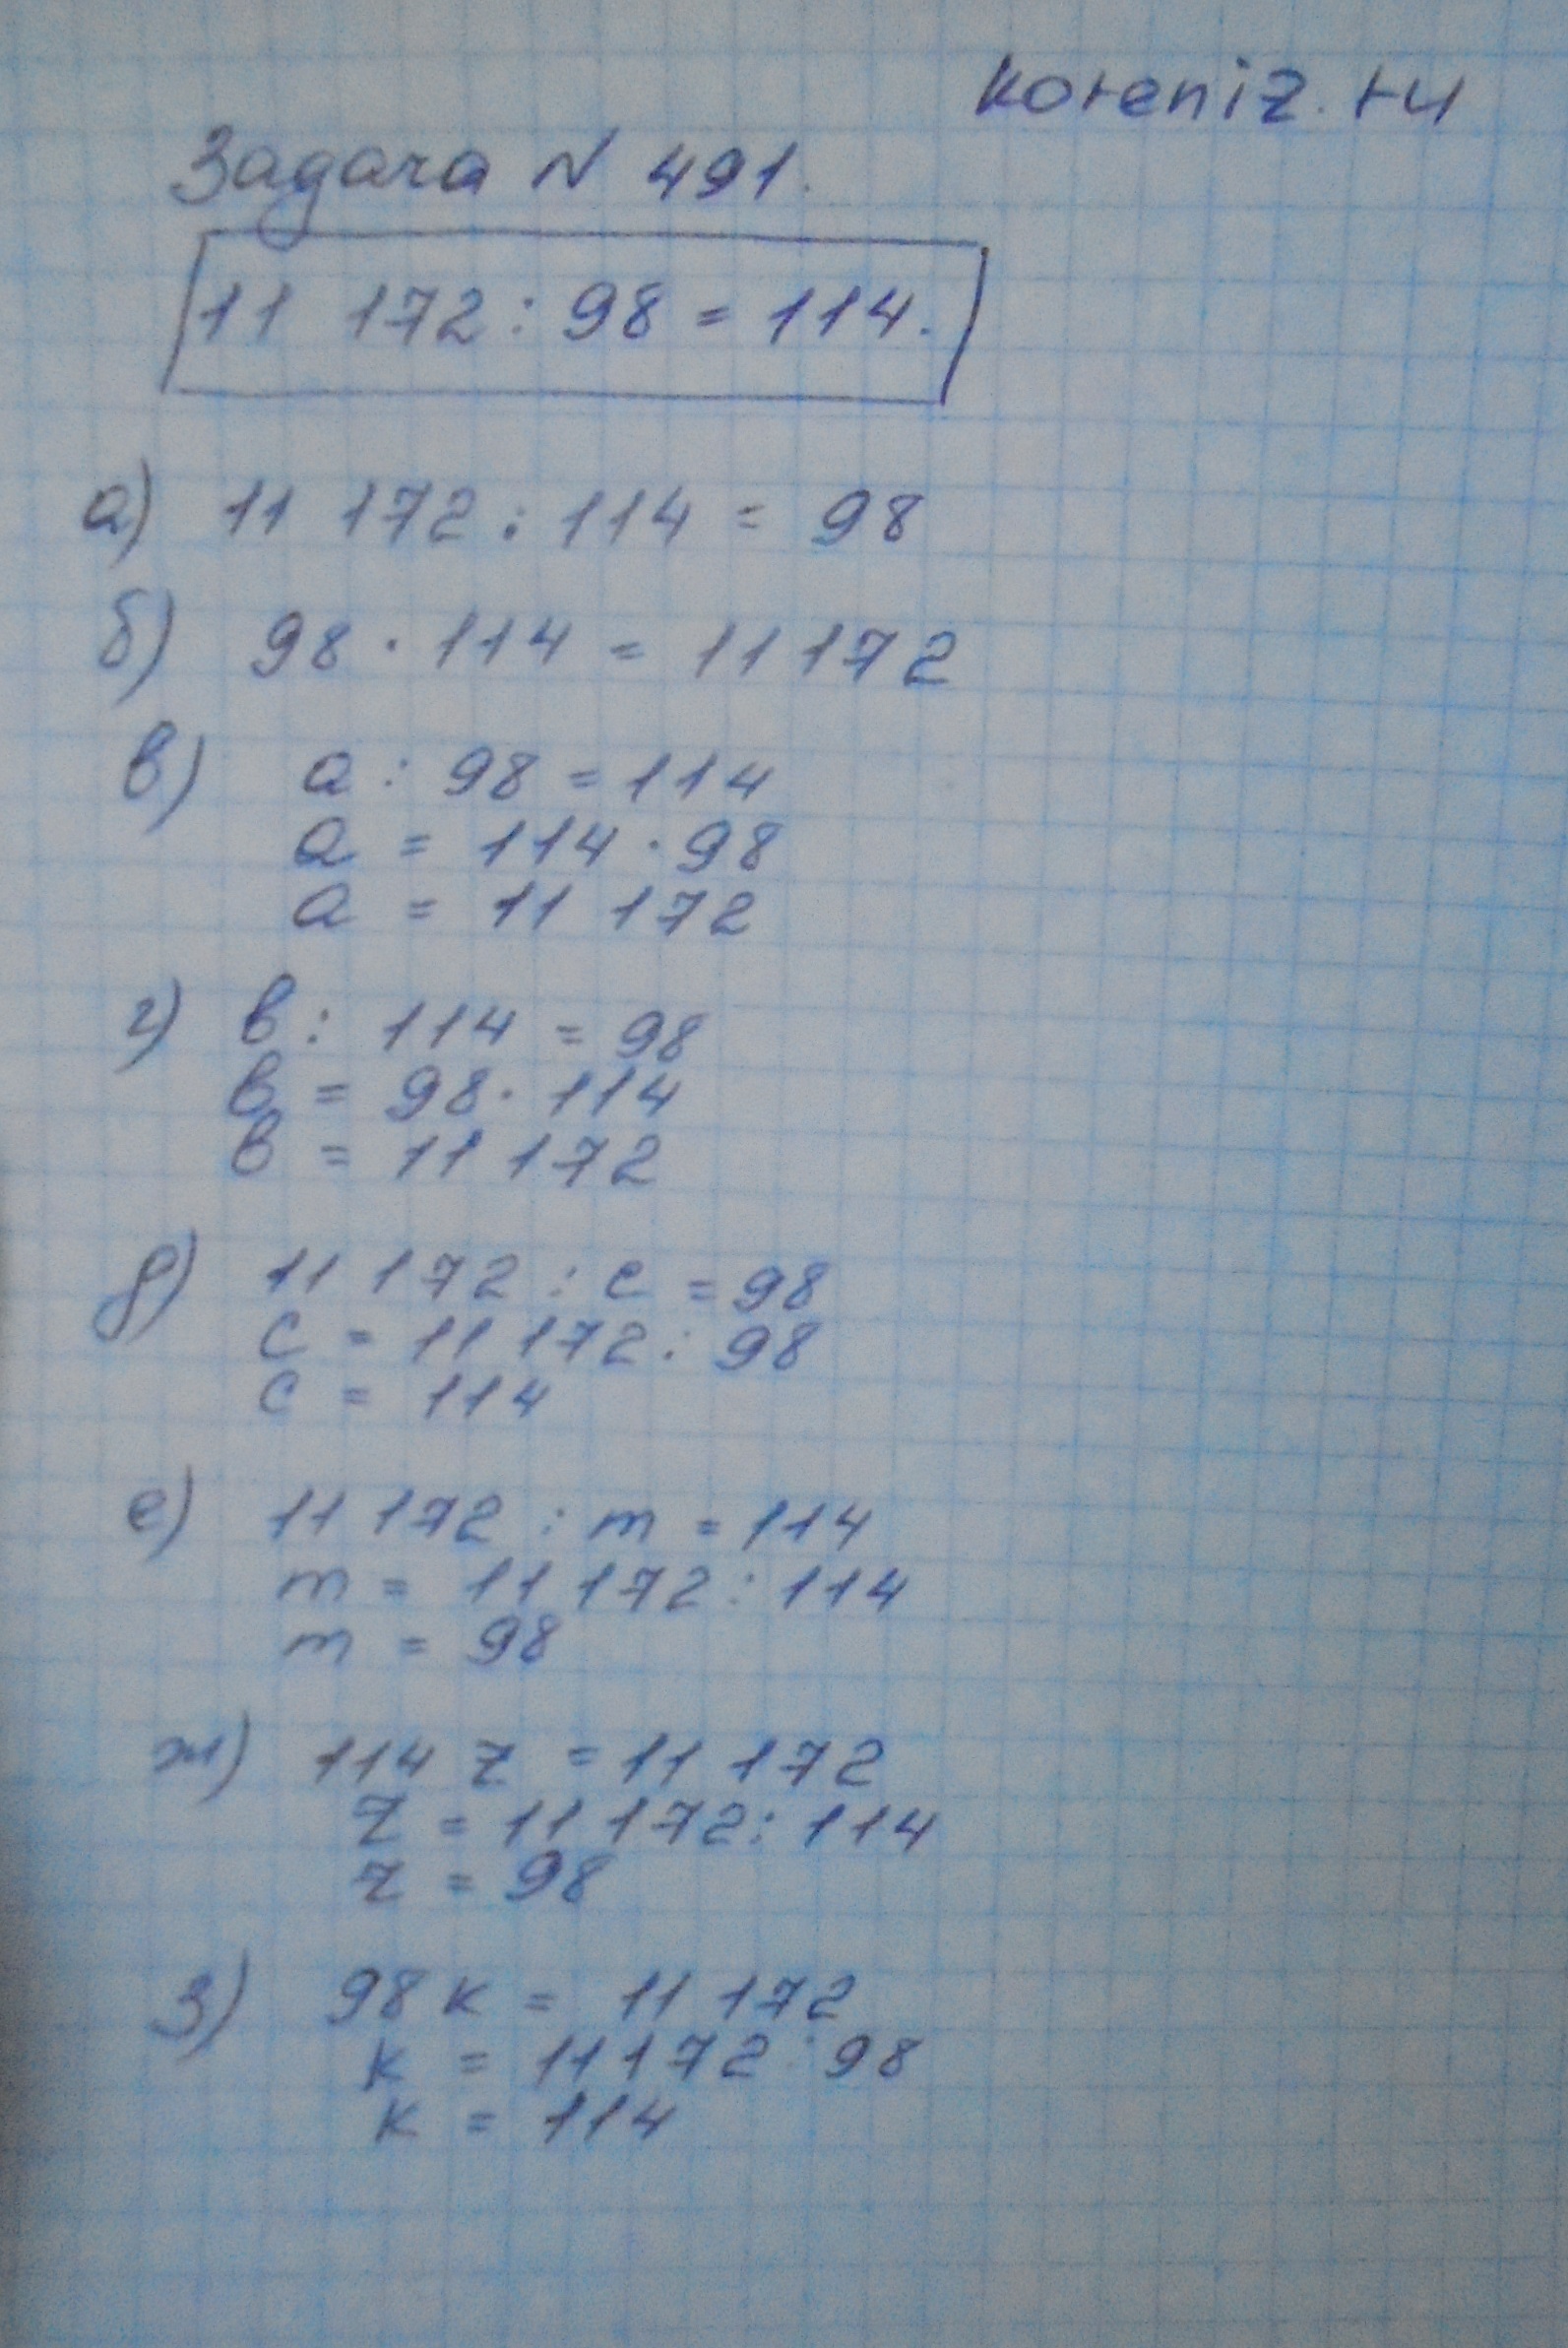 koreniz.ru
Задача N 491.
11 172 : 98 = 114.
а) 11 172 : 114 = 98
б) 98 · 114 = 11 172
в) a : 98 = 114
a = 114 · 98
a = 11 172
г) в : 114 = 98
в = 98 · 114
в = 11 172
д) 11 172 : c = 98
c = 11 172 : 98
c = 114
е) 11 172 : m = 114
m = 11 172 : 114
m = 98
ж) 114 z = 11 172
z = 11 172 : 114
z = 98
з) 98 к = 11 172
к = 11172 : 98
к = 114